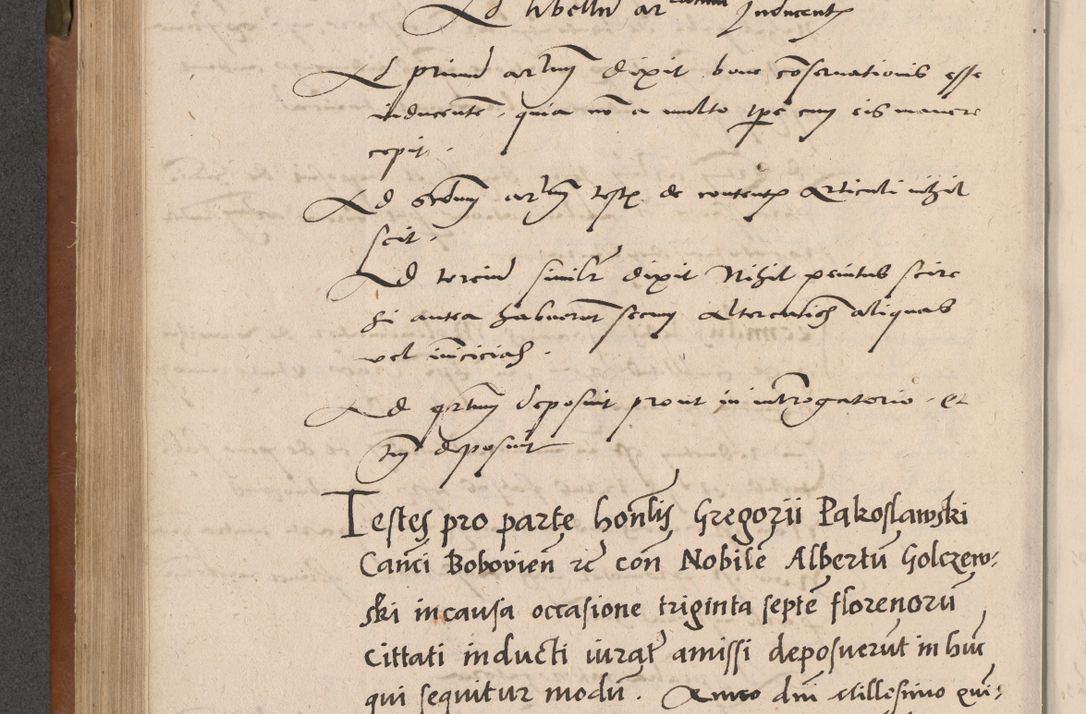 Ad libellū ar inducentꝭ
Ad primū arlm̄ dixit bone cōseruationis esse
inducentē, quia nō a multo tp̄e cuȝ eis manere
cepit.
Ad scdm̄ arlm̄ testꝭ de contentꝭ Articuli nihil
scit.
Ad terciū simlr̄ dixit Nihil penitus scire
si antea habuerūt secuȝ altercatiōes aliquas
vel iniciciāſ.
Ad qrtuȝ deposuit prout in intr̄rogatorio et
deposuit
Testes pro parte honlis Gregorii Pakoslawski
Canci Bobovien̄ rc̄ con̄ Nobilē Albertū Golczew-
ski in causa occasione triginta septē florenorū
Cittati inducti iurat̄ amissi deposuerūt in hūc
qui sequitur modū. Anno dnī Millesimo qui-